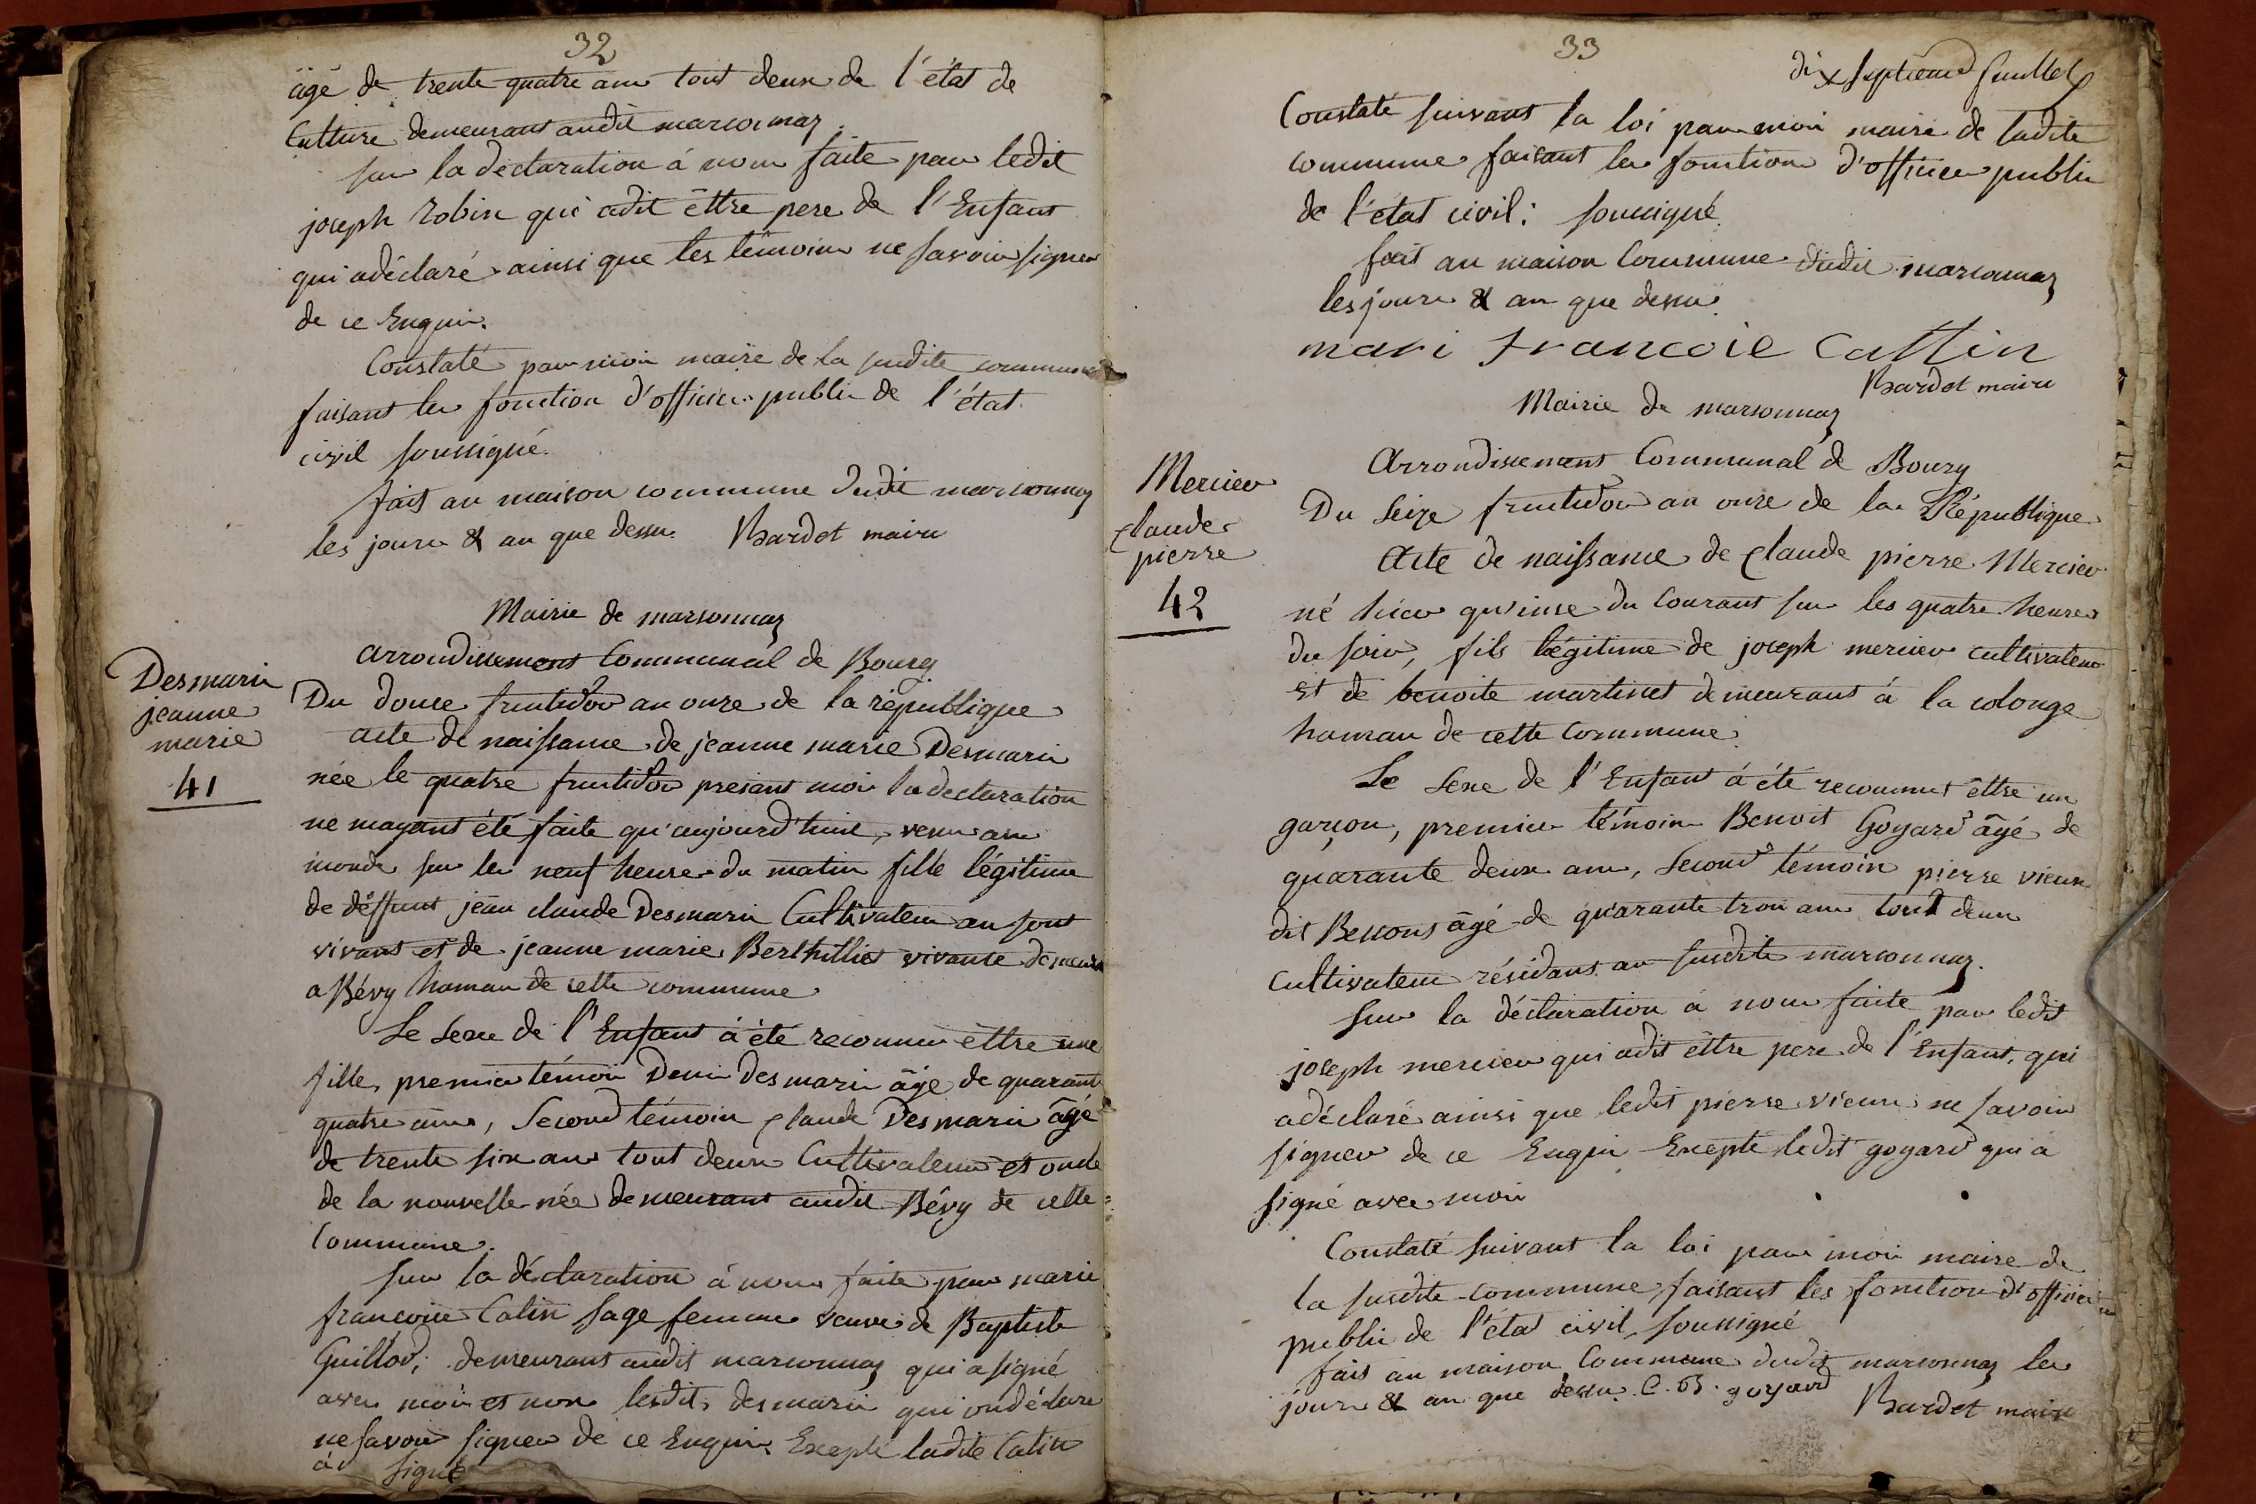 32
âgé de trente quatre ans tout deux de l'état de
Culture demeurant audit marsonnaz.
sur la déclaration à nous faite par ledit
joseph Robin qui adit êttre pere de l'Enfant
qui adéclaré ainsi que les témoins ne savoir signer
de ce Enquis.
Constaté par moi maire de la susdite commune
faisant les fonction d'officier public de l'état
civil soussigné.
fait au maison commune dudit marsonnaz
les jours & an que dessu. Bardet maire
Mairie de marsonnaz
arrondissement Communal de Bourg
Desmaris
jeanne
marie
41
Du douze fructidor an onze de la république
acte de naissance de jeanne marie Desmaris
née le quatre fructidor presant mois la declaration
ne mayant été faite qu'aujourd'hui, venu au
monde sur les neuf heures du matin fille légitime
de déffunt jean claude Desmaris Cultivateur au
vivant et de jeanne marie Berthillier vivante demeurt
a Bévy hamau de cette commune
Le sexe de l'Enfant à été reconnu êttre une
fille, premier témoin Denis Desmaris âgé de quarante
quatre ans, Second témoin claude Desmaris âgé
de trente six ans tout deux Cultivateur et oncle
de la nouvelle née demeurant audit Bévy de cette
Commune.
sur la déclaration à nous faite par marie
francoise Catin sage femme veuve de Baptiste
Guillod, demeurant audit marsonnaz qui a signé
avec moi et non lesdits desmaris qui ondéclaré
ne savoir signer de ce Enquis Excepté ladite Catin
à signé
33
dix septieme feuillet
Constaté suivant la loi par moi maire de ladite
commune faisant les fonction d'officier public
de l'état civil; soussigné.
fait au maison Commune dudit marsonnaz
les jours & an que dessu.
mari francoie Cattin
Bardet maire
Mairie de marsonnaz
Arrondissement Communal de Bourg
Mercier
claude
pierre
42
Du seize fructidor an onze de la République
Acte de naissance de claude pierre Mercier
né hier quinze du Courant sur les quatre heures
du soir, fils légitime de joseph mercier cultivateur
et de benoite martinet demeurant à la colonge
hamau de cette Commune.
Le sexe de l'Enfant à été reconnut êttre un
garçon, premier témoin Benoit Goyard âgé de
quarante deux ans, Second témoin pierre vieux
dit Bessons âgé de quarante trois ans tout deux
cultivateur résidant au susdite marsonnaz.
sur la déclaration a nous faite par ledit
joseph mercier qui adit êttre pere de l'Enfant, qui
adéclaré ainsi que ledit pierre vieux ne savoir
signer de ce Enquis Excepté ledit goyard qui a
signé avec moi
Constaté suivant la loi par moi maire de
la susdite commune, faisant les fonction d'officier
public de l'état civil, soussigné
fait au maison Commune dudit marsonnaz les
jours & an que dessu. C. B. goyard Bardet maire